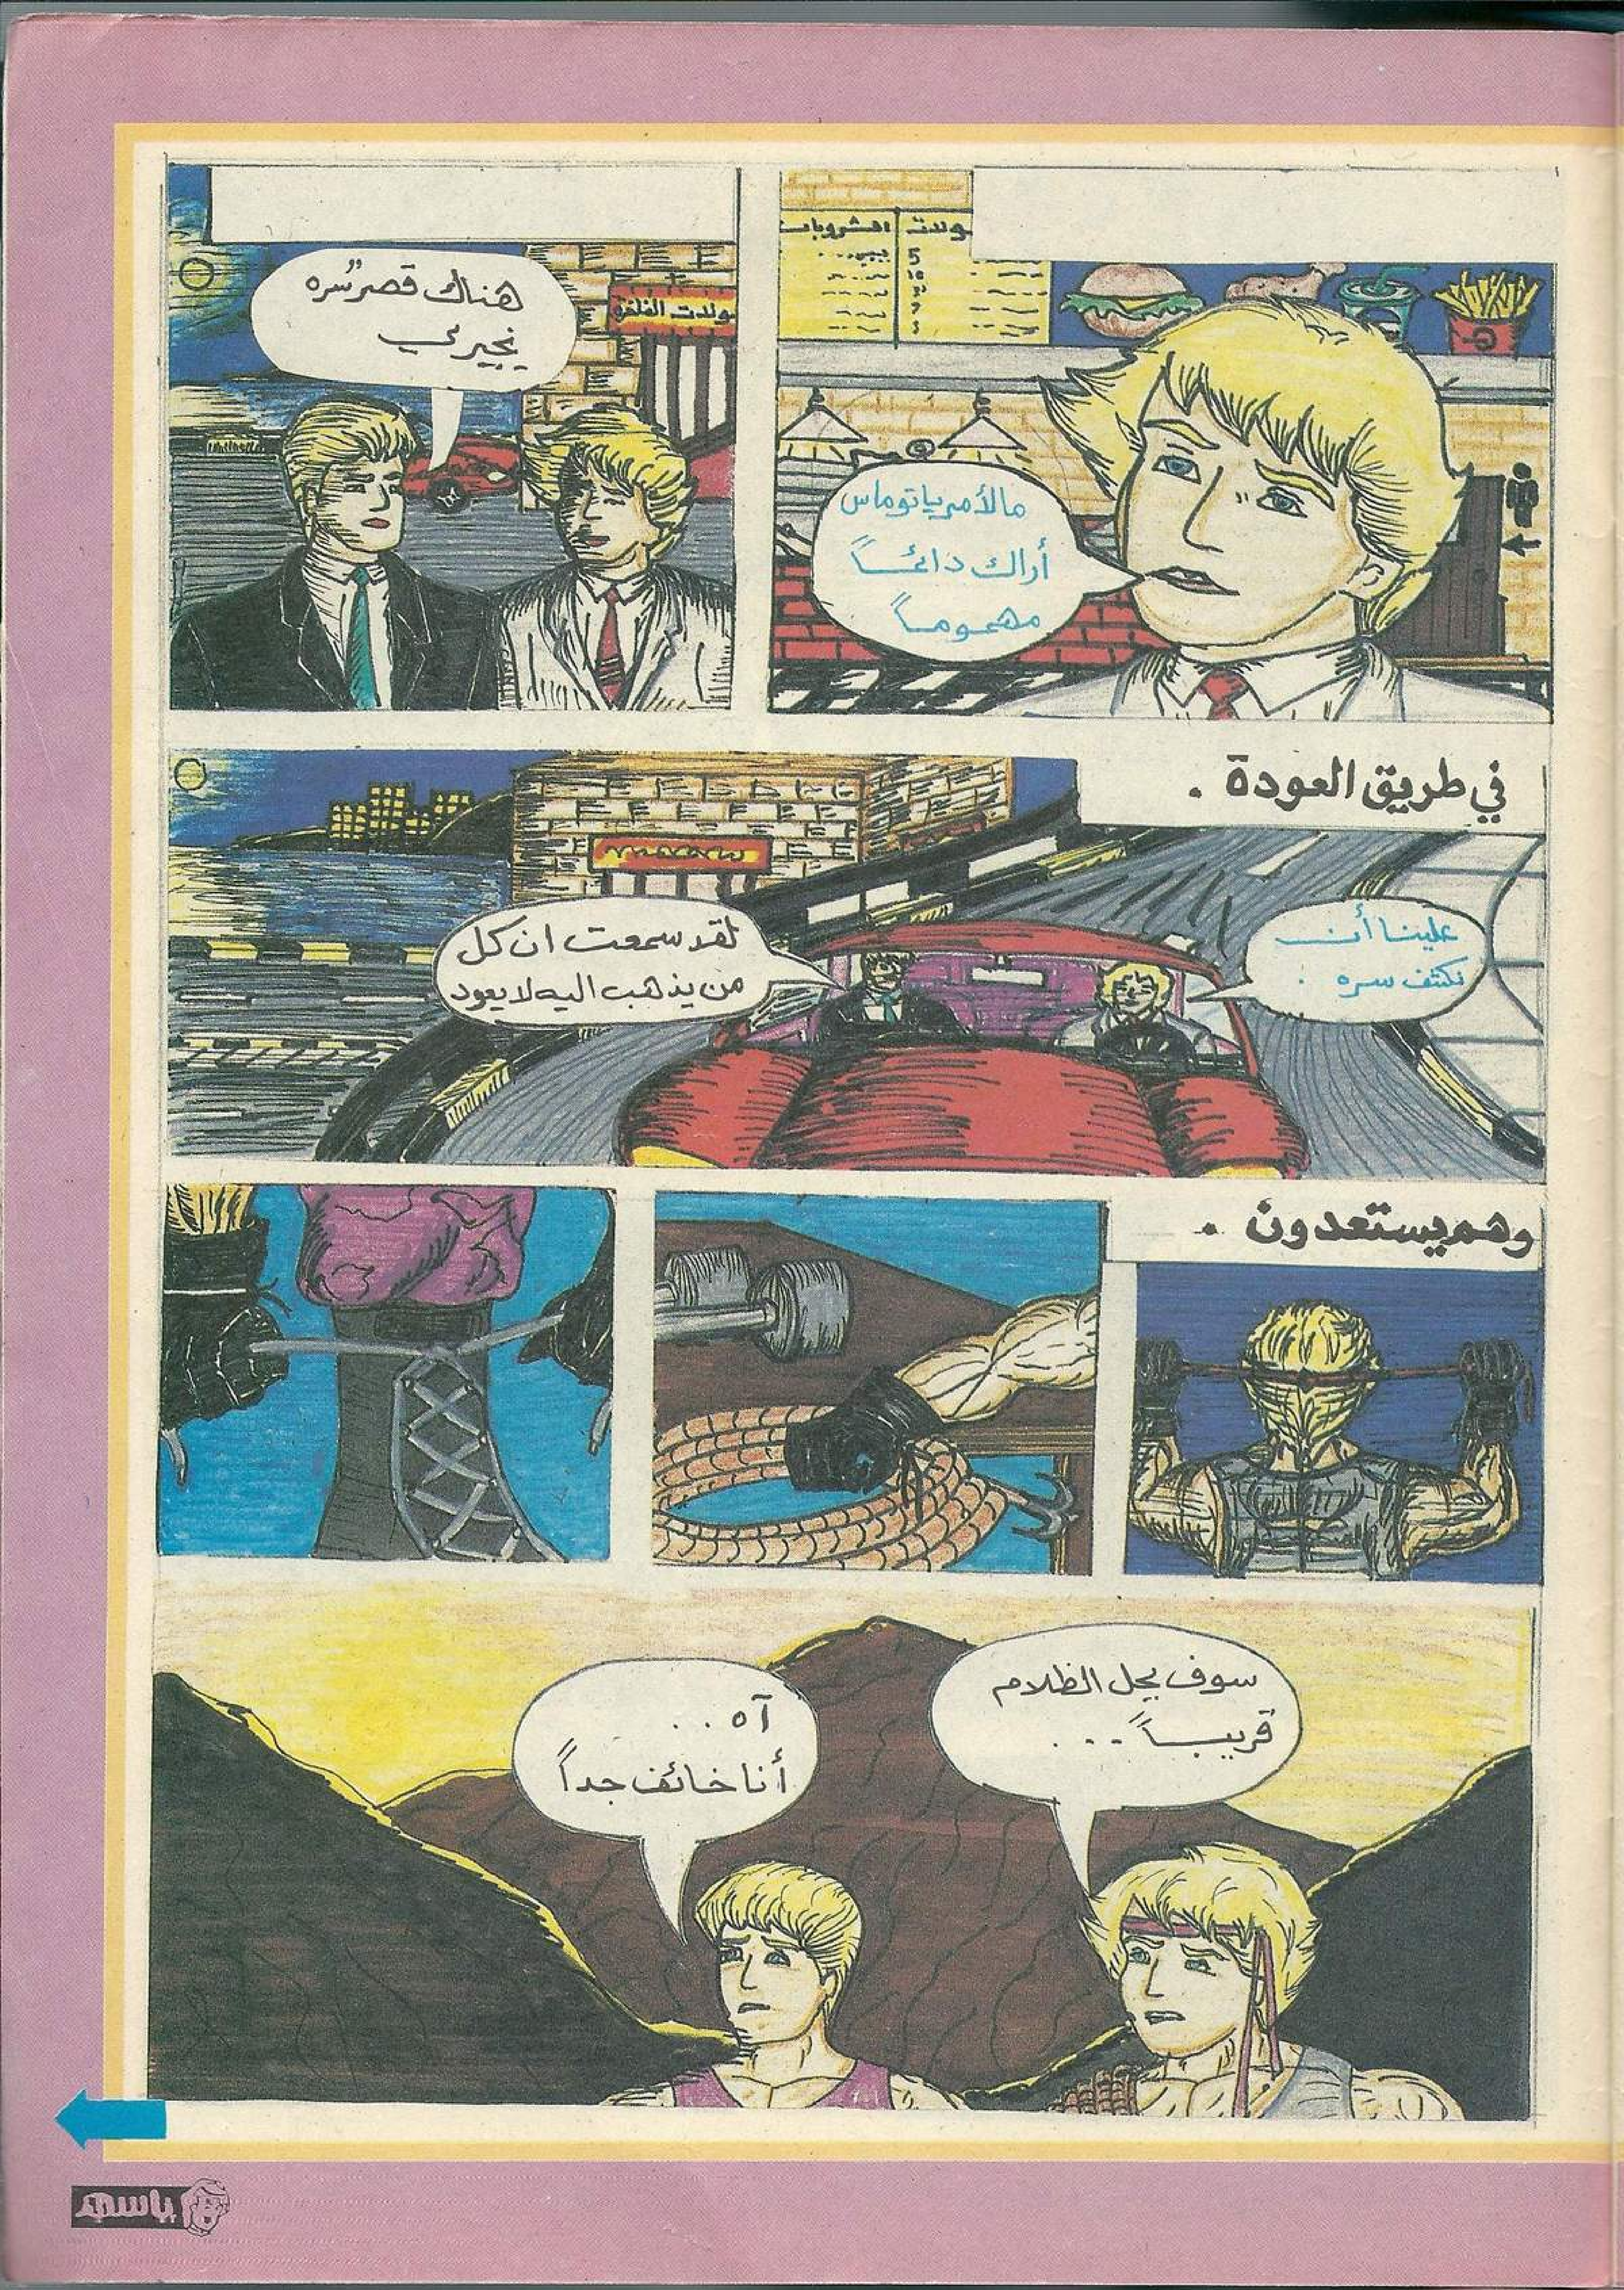 المشروبات
5
10
7
ما لأمر يا توماس
أراك دائماً
مهموماً
ولدت الفلفو
هناك قصر سُره
يحيرني
في طريق العودة .
علينا أن
نكشف سره .
لقد سمعت ان كل
من يذهب اليه لا يعود
وهم يستعدون .
سوف يحل الظلام
قريباً ...
آه ..
أنا خائف جداً
باسم